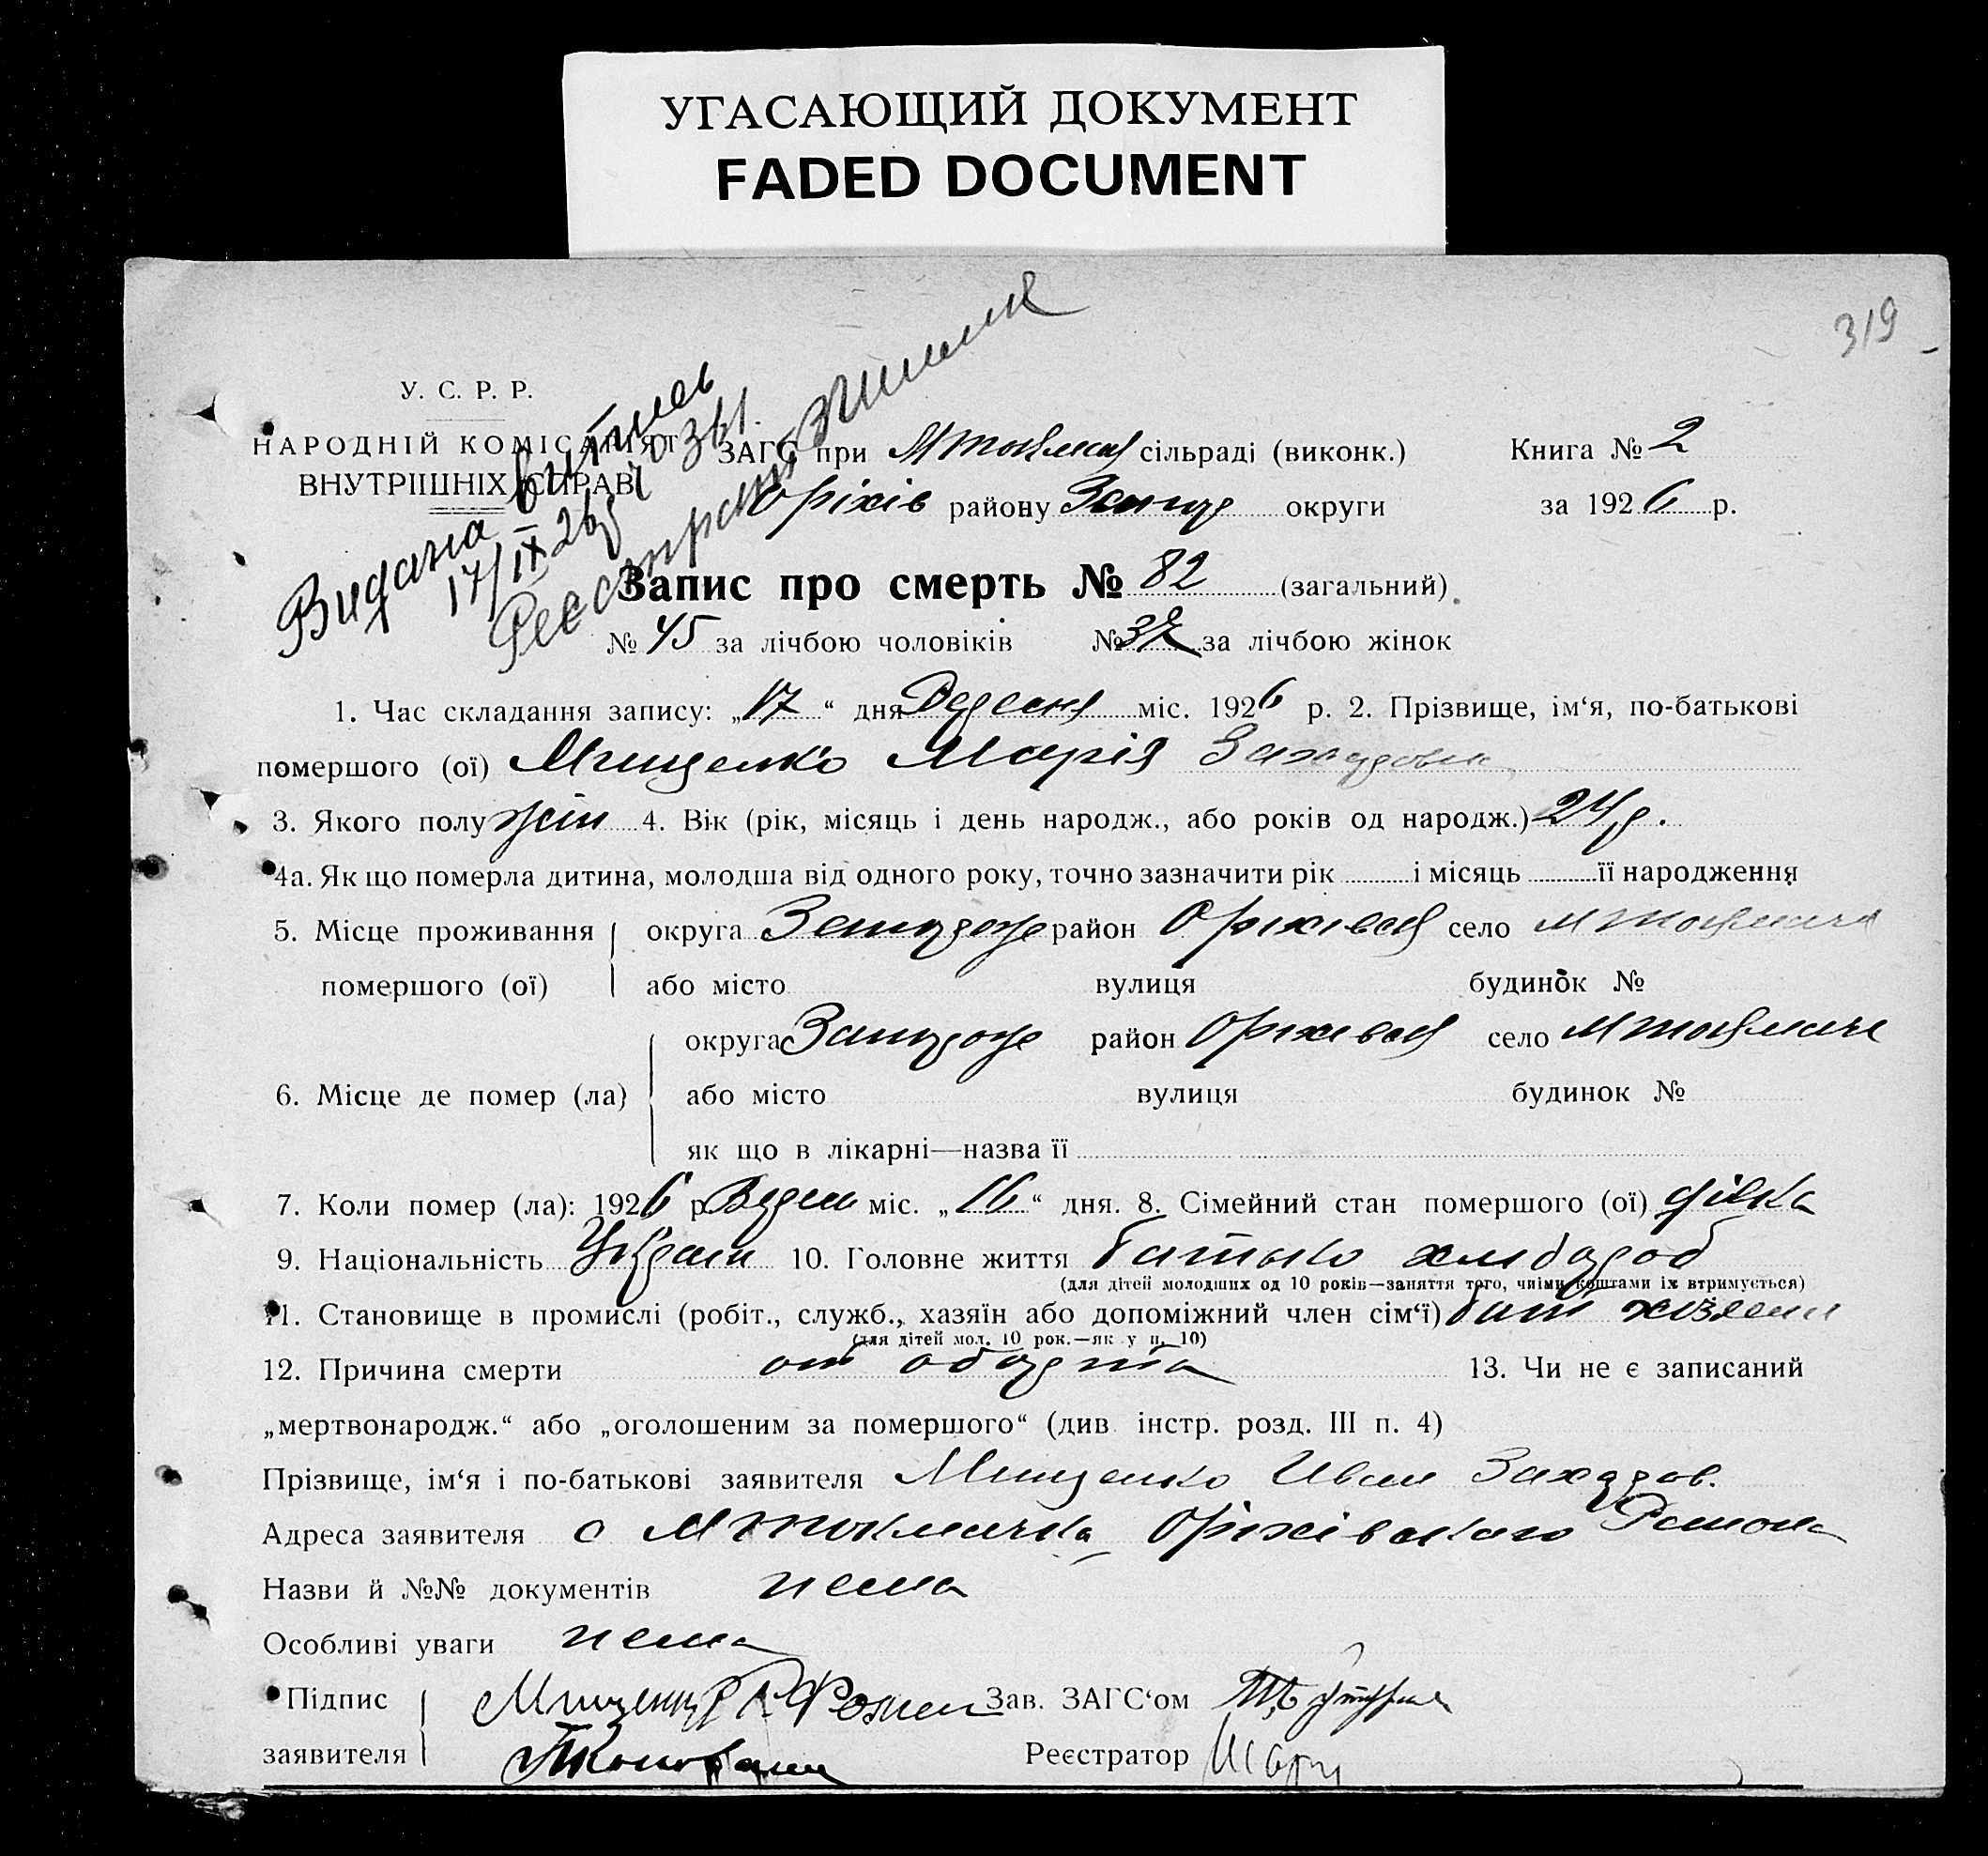 УГАСАЮЩИЙ ДОКУМЕНТ
FADED DOCUMENT
319
У. С. Р. Р.
НАРОДНІЙ КОМІСАРІЯТ
ВНУТРІШНІХ СПРАВ
Видана витпсь
17/IX 26р.
ЗАГС при М Токмач сільраді (виконк.) Книга № 2
Оріхів району Запор округи за 1926 р.
Запис про смерть № 82 (загальний)
№ 45 за лічбою чоловіків № 37 за лічбою жінок
1. Час складання запису: „17“ дня Вересня міс. 1926 р. 2. Прізвище, ім‘я, по-батькові
помершого (ої) Мищенко Марія Захаровна
3. Якого полу жін 4. Вік (рік, місяць і день народж., або років од народж.) 24 р.
4а. Як що померла дитина, молодша від одного року, точно зазначити рік і місяць її народження
5. Місце проживання округа Запороже район Оріхівск село М Токмачка
помершого (ої) або місто вулиця будинок №
округа Запороже район Оріхівск село М Токмачк
6. Місце де помер (ла) або місто вулиця будинок №
як що в лікарні—назва її
7. Коли помер (ла): 1926 р Верес міс. „16“ дня. 8. Сімейний стан помершого (ої) дівка
9. Національність Україн 10. Головне життя батько хлібороб
(для дітей молодших од 10 років—заняття того, чиіми коштами їх втримується)
11. Становище в промислі (робіт., служб., хазяїн або допоміжний член сім‘ї) бат хозяин
(для дітей мол. 10 рок.—як у п. 10)
12. Причина смерти от аборта 13. Чи не є записаний
„мертвонародж.“ або „оголошеним за помершого“ (див інстр. розд. III п. 4)
Прізвище, ім‘я і по-батькові заявителя Мищенко Иван Захаров.
Адреса заявителя с М Токмачка Оріхівского Району
Назви й №№ документів нема
Особливі уваги нема
Підпис Зав. ЗАГС‘ом
заявителя Реєстратор